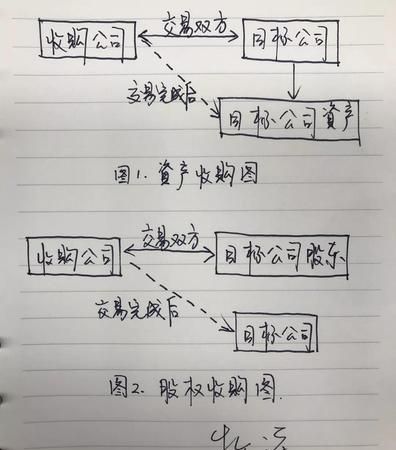 收购公司 交易双方 目标公司
交易完成后
目标公司資产
图1.資产收购图
收购公司 交易双方 目标公司股东
交易完成后
目标公司
图2.股权收购图.